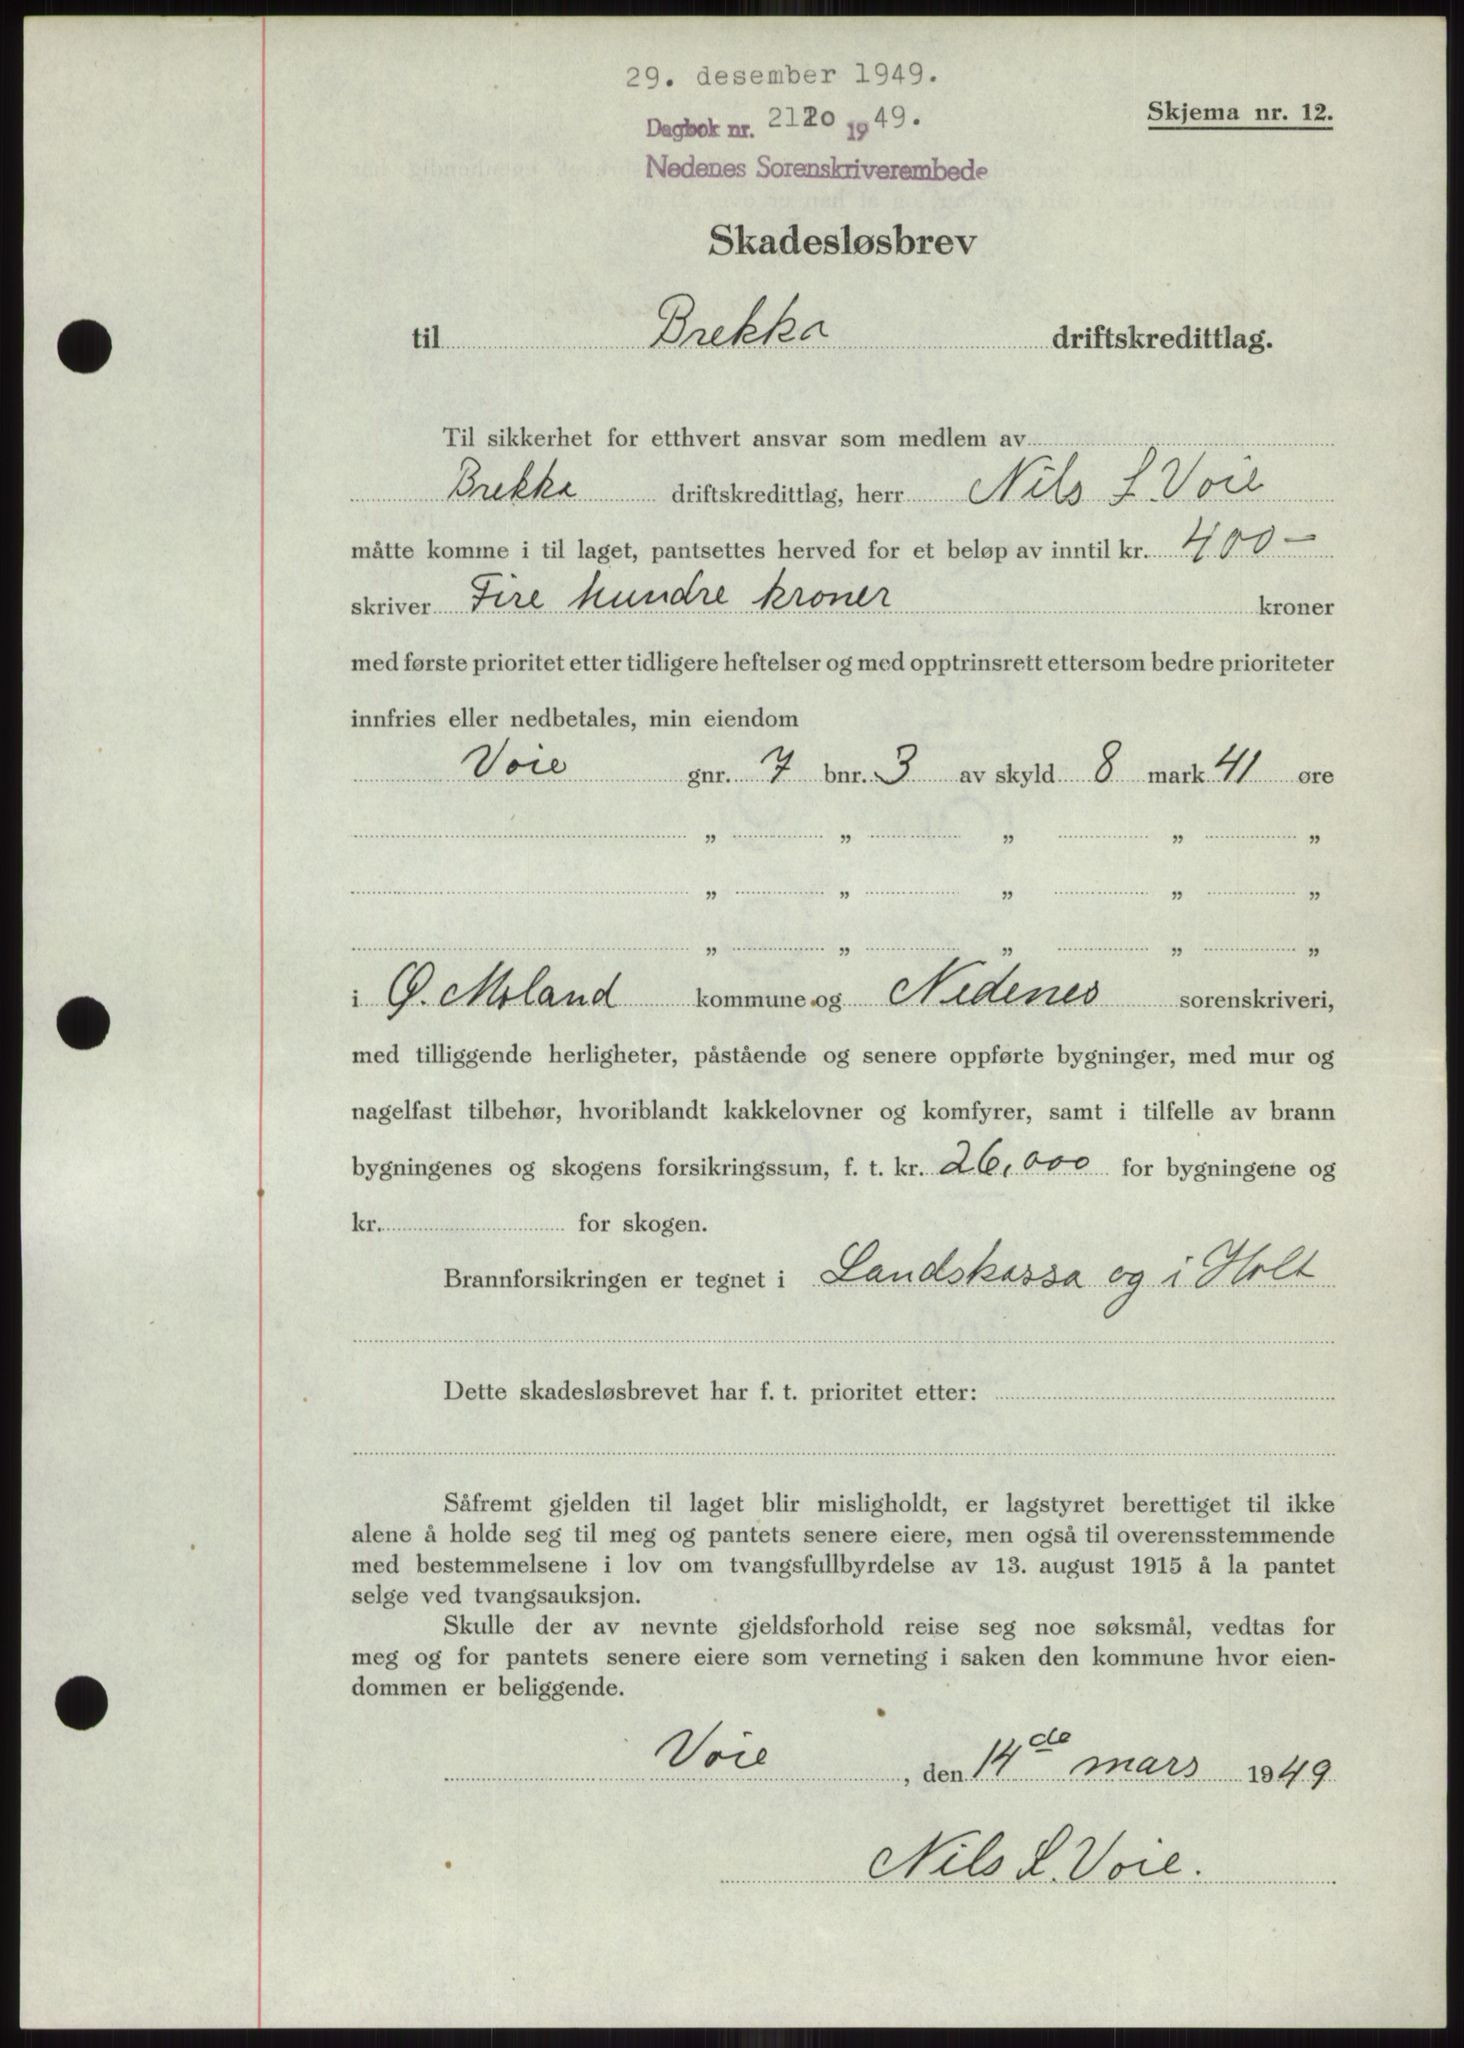 29. desember 1949.
Skjema nr. 12.
Dagbok nr. 2120 1949.
Nedenes Sorenskriverembede
Skadesløsbrev
til Brekka driftskredittlag.
Til sikkerhet for etthvert ansvar som medlem av
Brekka driftskredittlag, herr Nils S. Voie
måtte komme i til laget, pantsettes herved for et beløp av inntil kr. 400 —
skriver Fire hundre kroner kroner
med første prioritet etter tidligere heftelser og med opptrinsrett ettersom bedre prioriteter
innfries eller nedbetales, min eiendom
Voie gnr. 7 bnr. 3 av skyld 8 mark 41 øre
„ „ „ „ „
„ „ „ „ „
„ „ „ „ „
i Ø. Moland kommune og Nedenes sorenskriveri,
med tilliggende herligheter, påstående og senere oppførte bygninger, med mur og
nagelfast tilbehør, hvoriblandt kakkelovner og komfyrer, samt i tilfelle av brann
bygningenes og skogens forsikringssum, f. t. kr. 26,000 for bygningene og
kr. for skogen.
Brannforsikringen er tegnet i Landskassa og i Holt
Dette skadesløsbrevet har f. t. prioritet etter:
Såfremt gjelden til laget blir misligholdt, er lagstyret berettiget til ikke
alene å holde seg til meg og pantets senere eiere, men også til overensstemmende
med bestemmelsene i lov om tvangsfullbyrdelse av 13. august 1915 å la pantet
selge ved tvangsauksjon.
Skulle der av nevnte gjeldsforhold reise seg noe søksmål, vedtas for
meg og for pantets senere eiere som verneting i saken den kommune hvor eien-
dommen er beliggende.
Voie, den 14de mars 1949
Nils S. Voie.